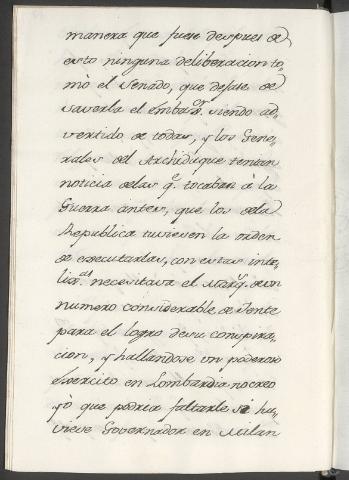 manera que fuese despues de
esto ninguna deliberacion to,
mò el Senado, que dejase de
saverla el Embax.or siendo ad,
vertido de todas, y los Gene,
rales del Archiduque tenian
noticia delas q.e tocaban à la
Guerra antes, que los dela
Republica tuviesen la orden
de executarlas, con estas inte,
lix.as necesitava el Marq.s de un
numero considerable de Jente
para el logro desu conspira,
cion, y hallandose un poderoso
Exercito en Lombardia no creo
yò que podria faltarle si hu,
viese Governador en Milan